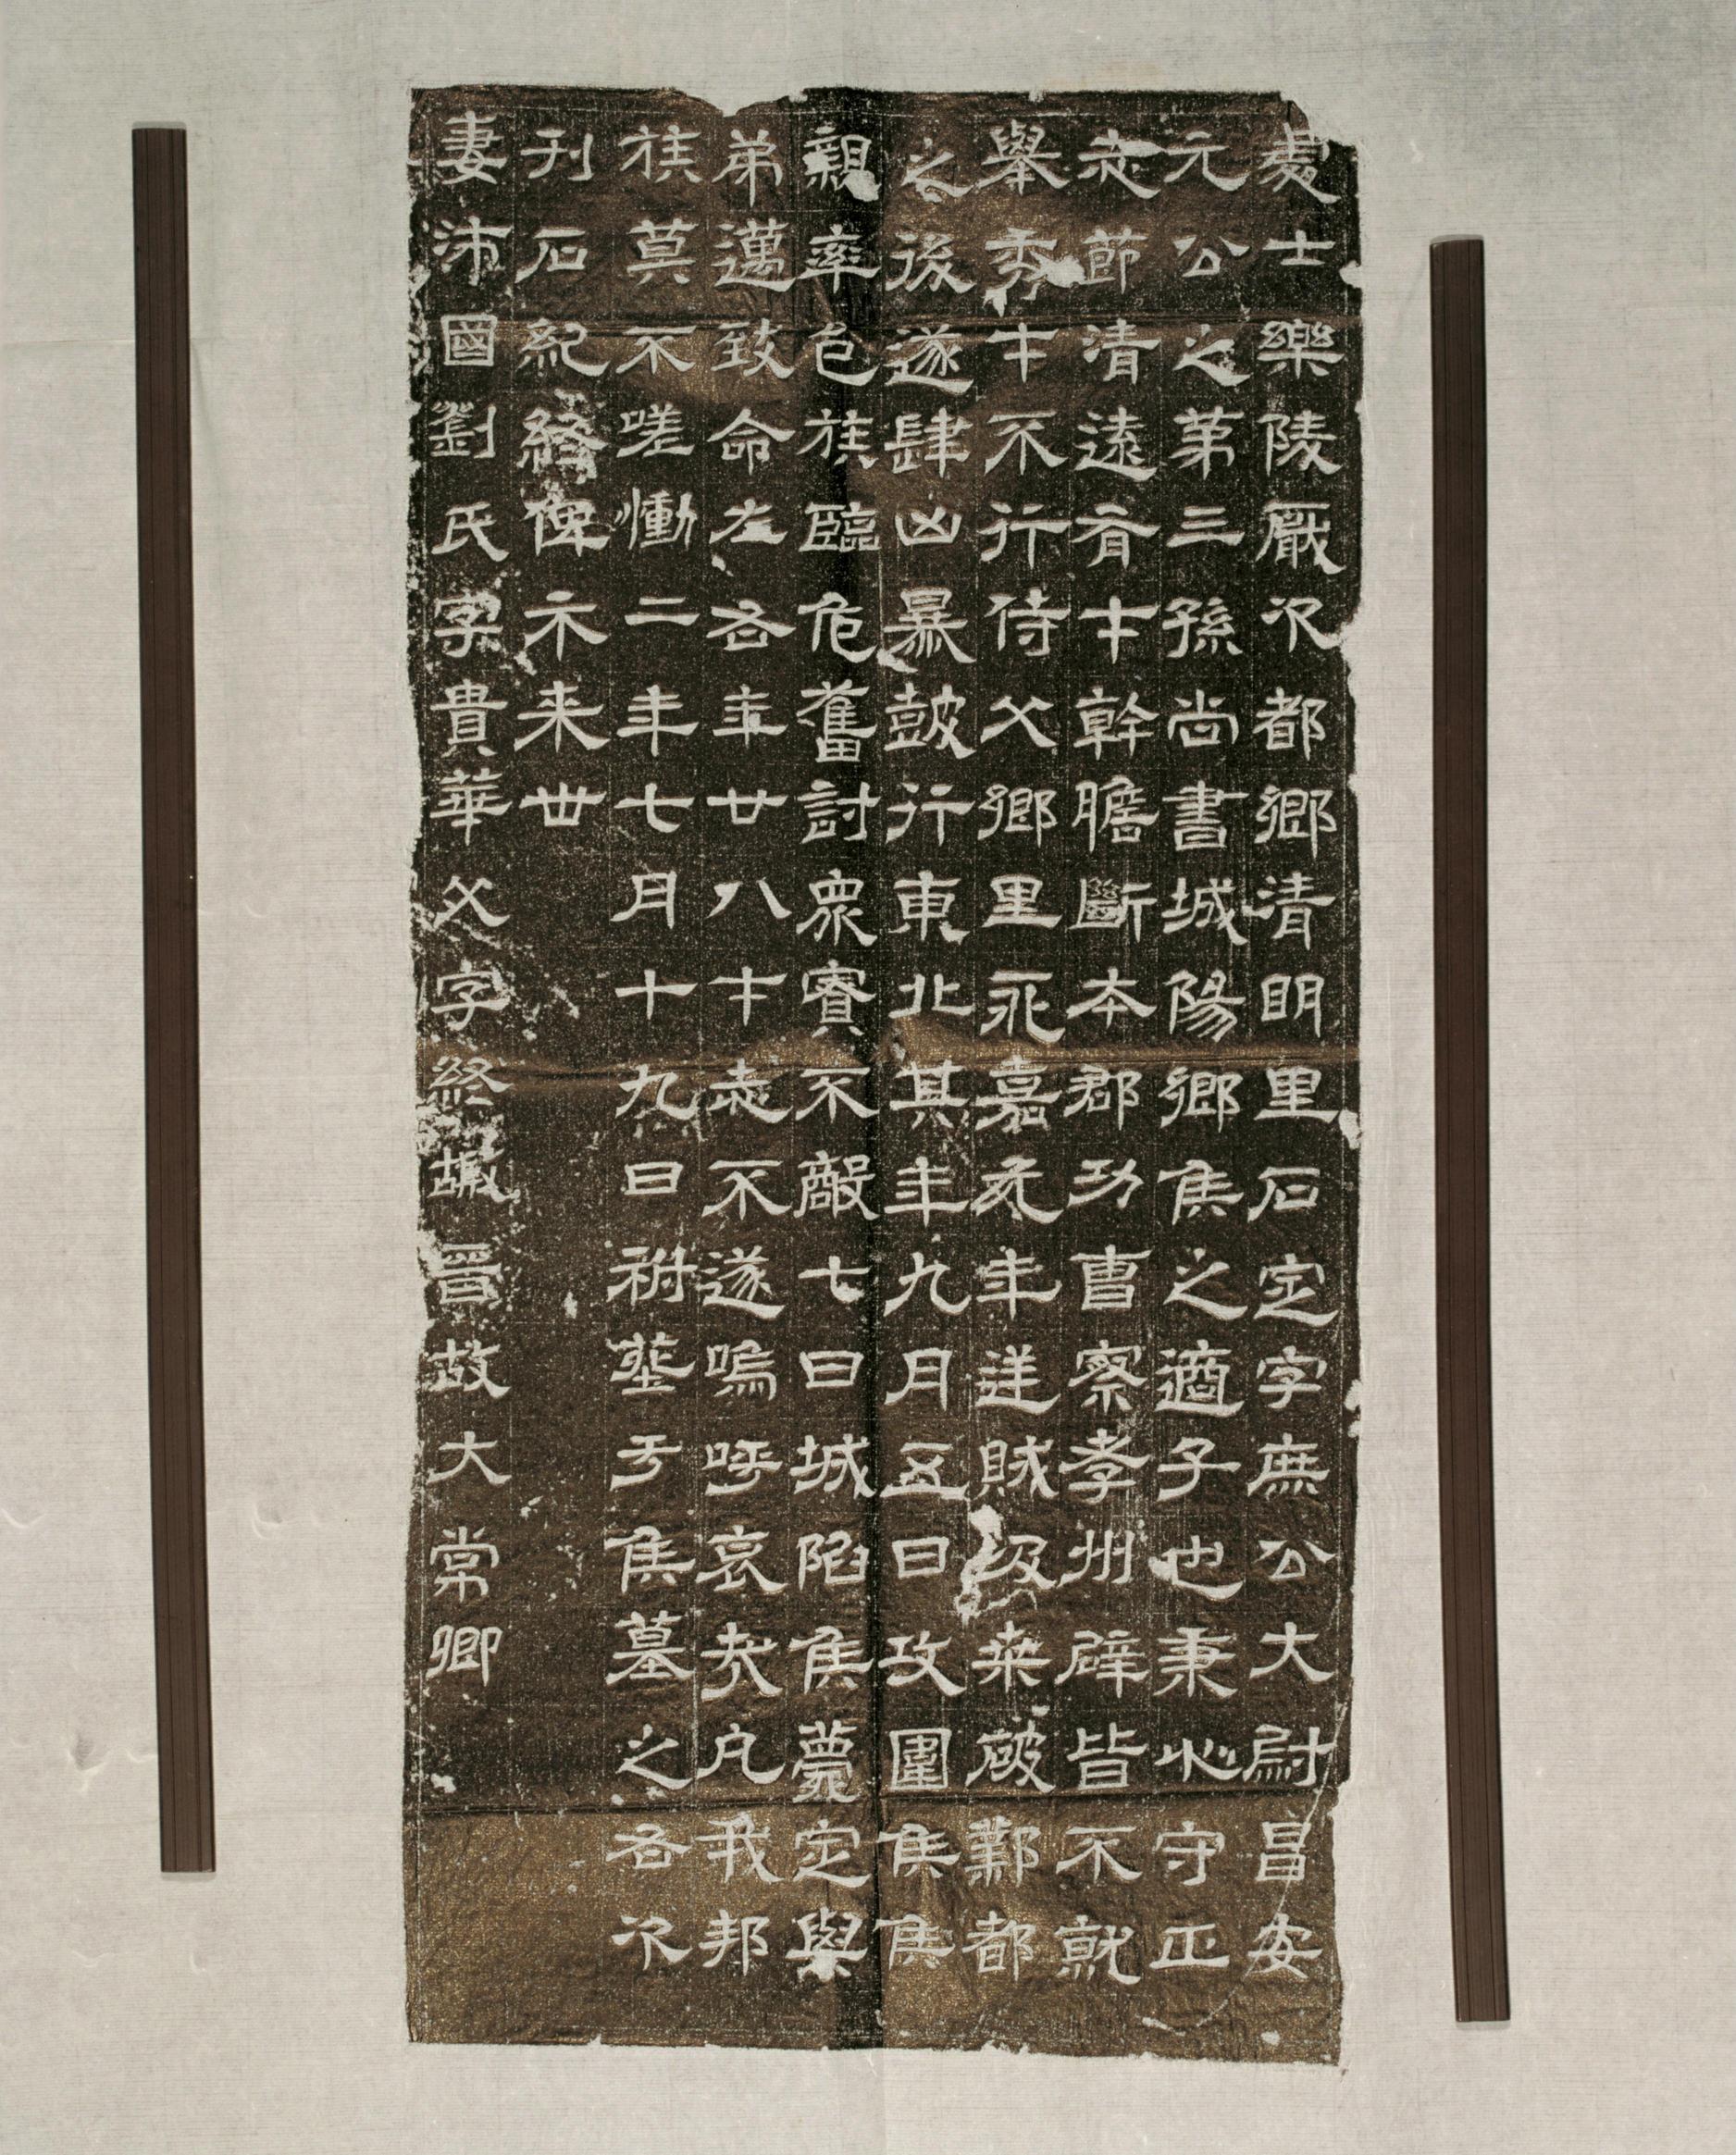 處士樂陵厭次都鄉清眀里石定字庶公大尉昌安
元公之第三孫尚書城陽鄉侯之適子也秉心守正
志節清遠有才幹膽斷本郡功曹察孝州辟皆不就
舉秀才不行侍父鄉里永嘉元年逆賊汲桒破鄴都
之後遂肆凶暴鼓行東北其年九月五日攻圍侯侯
親率邑族臨危奮討眾寡不敵七日城陷侯薨定與
弟邁致命左右年廿八才志不遂嗚呼哀哉凡我邦
族莫不嗟慟二年七月十九日祔塟于侯墓之右次
刊石紀終俾示来世
妻沛國劉氏字貴華父字終嘏晉故大常卿